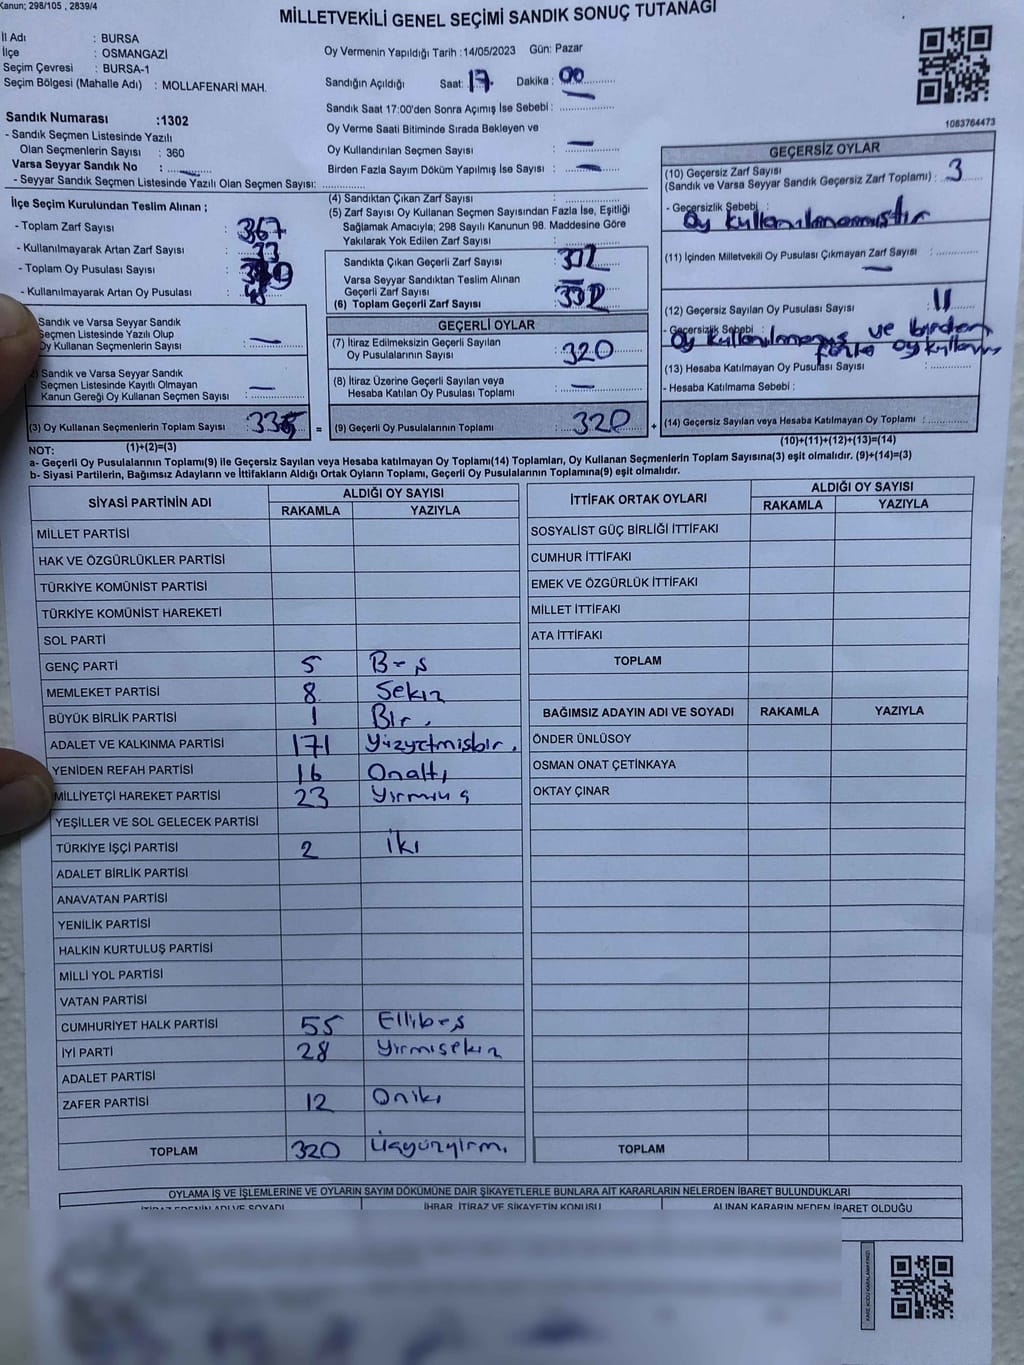 Kanun; 298/105 , 2839/4
MİLLETVEKİLİ GENEL SEÇİMİ SANDIK SONUÇ TUTANAĞI
İl Adı : BURSA
İlçe : OSMANGAZİ
Seçim Çevresi : BURSA-1
Seçim Bölgesi (Mahalle Adı) : MOLLAFENARİ MAH.
Oy Vermenin Yapıldığı Tarih :14/05/2023 Gün: Pazar
Sandığın Açıldığı Saat: 17 Dakika : 00
Sandık Saat 17:00'den Sonra Açımış İse Sebebi :
Oy Verme Saati Bitiminde Sırada Bekleyen ve
Oy Kullandırılan Seçmen Sayısı : —
Birden Fazla Sayım Döküm Yapılmış İse Sayısı : —
1083764473
Sandık Numarası :1302
- Sandık Seçmen Listesinde Yazılı
Olan Seçmenlerin Sayısı : 360
Varsa Seyyar Sandık No : —
- Seyyar Sandık Seçmen Listesinde Yazılı Olan Seçmen Sayısı:
İlçe Seçim Kurulundan Teslim Alınan ;
- Toplam Zarf Sayısı : 367
- Kullanılmayarak Artan Zarf Sayısı :
- Toplam Oy Pusulası Sayısı :
- Kullanılmayarak Artan Oy Pusulası :
Sandık ve Varsa Seyyar Sandık
Seçmen Listesinde Yazılı Olup
Oy Kullanan Seçmenlerin Sayısı : —
Sandık ve Varsa Seyyar Sandık
Seçmen Listesinde Kayıtlı Olmayan
Kanun Gereği Oy Kullanan Seçmen Sayısı : —
(3) Oy Kullanan Seçmenlerin Toplam Sayısı :
(4) Sandıktan Çıkan Zarf Sayısı :
(5) Zarf Sayısı Oy Kullanan Seçmen Sayısından Fazla İse, Eşitliği
Sağlamak Amacıyla; 298 Sayılı Kanunun 98. Maddesine Göre
Yakılarak Yok Edilen Zarf Sayısı :
Sandıkta Çıkan Geçerli Zarf Sayısı : 332
Varsa Seyyar Sandıktan Teslim Alınan
Geçerli Zarf Sayısı : —
(6) Toplam Geçerli Zarf Sayısı : 332
GEÇERLİ OYLAR
(7) İtiraz Edilmeksizin Geçerli Sayılan
Oy Pusulalarının Sayısı : 320
(8) İtiraz Üzerine Geçerli Sayılan veya
Hesaba Katılan Oy Pusulası Toplamı : —
= (9) Geçerli Oy Pusulalarının Toplamı : 320
GEÇERSİZ OYLAR
(10) Geçersiz Zarf Sayısı
(Sandık ve Varsa Seyyar Sandık Geçersiz Zarf Toplamı) : 3
- Geçersizlik Sebebi :
Oy kullanılmamıştır
(11) İçinden Milletvekili Oy Pusulası Çıkmayan Zarf Sayısı : —
(12) Geçersiz Sayılan Oy Pusulası Sayısı : 11
- Geçersizlik Sebebi :
Oy kullanılmamış ve birden
fazla oy kullanımı
(13) Hesaba Katılmayan Oy Pusulası Sayısı :
- Hesaba Katılmama Sebebi :
+ (14) Geçersiz Sayılan veya Hesaba Katılmayan Oy Toplamı :
NOT: (1)+(2)=(3) (10)+(11)+(12)+(13)=(14)
a- Geçerli Oy Pusulalarının Toplamı(9) ile Geçersiz Sayılan veya Hesaba katılmayan Oy Toplamı(14) Toplamları, Oy Kullanan Seçmenlerin Toplam Sayısına(3) eşit olmalıdır. (9)+(14)=(3)
b- Siyasi Partilerin, Bağımsız Adayların ve İttifakların Aldığı Ortak Oyların Toplamı, Geçerli Oy Pusulalarının Toplamına(9) eşit olmalıdır.
SİYASİ PARTİNİN ADI ALDIĞI OY SAYISI
RAKAMLA YAZIYLA
MİLLET PARTİSİ
HAK VE ÖZGÜRLÜKLER PARTİSİ
TÜRKİYE KOMÜNİST PARTİSİ
TÜRKİYE KOMÜNİST HAREKETİ
SOL PARTİ
GENÇ PARTİ 5 Beş
MEMLEKET PARTİSİ 8 Sekiz
BÜYÜK BİRLİK PARTİSİ 1 Bir.
ADALET VE KALKINMA PARTİSİ 171 Yüzyetmişbir.
YENİDEN REFAH PARTİSİ 16 Onaltı
MİLLİYETÇİ HAREKET PARTİSİ 23 Yirmiüç
YEŞİLLER VE SOL GELECEK PARTİSİ
TÜRKİYE İŞÇİ PARTİSİ 2 İki
ADALET BİRLİK PARTİSİ
ANAVATAN PARTİSİ
YENİLİK PARTİSİ
HALKIN KURTULUŞ PARTİSİ
MİLLİ YOL PARTİSİ
VATAN PARTİSİ
CUMHURİYET HALK PARTİSİ 55 Ellibeş
İYİ PARTİ 28 Yirmisekiz
ADALET PARTİSİ
ZAFER PARTİSİ 12 Oniki
TOPLAM 320 Üçyüzyirmi
İTTİFAK ORTAK OYLARI ALDIĞI OY SAYISI
RAKAMLA YAZIYLA
SOSYALİST GÜÇ BİRLİĞİ İTTİFAKI
CUMHUR İTTİFAKI
EMEK VE ÖZGÜRLÜK İTTİFAKI
MİLLET İTTİFAKI
ATA İTTİFAKI
TOPLAM
BAĞIMSIZ ADAYIN ADI VE SOYADI RAKAMLA YAZIYLA
ÖNDER ÜNLÜSOY
OSMAN ONAT ÇETİNKAYA
OKTAY ÇINAR
TOPLAM
OYLAMA İŞ VE İŞLEMLERİNE VE OYLARIN SAYIM DÖKÜMÜNE DAİR ŞİKAYETLERLE BUNLARA AİT KARARLARIN NELERDEN İBARET BULUNDUKLARI
İTİRAZ EDENİN ADI VE SOYADI İHBAR, İTİRAZ VE ŞİKAYETİN KONUSU ALINAN KARARIN NEDEN İBARET OLDUĞU